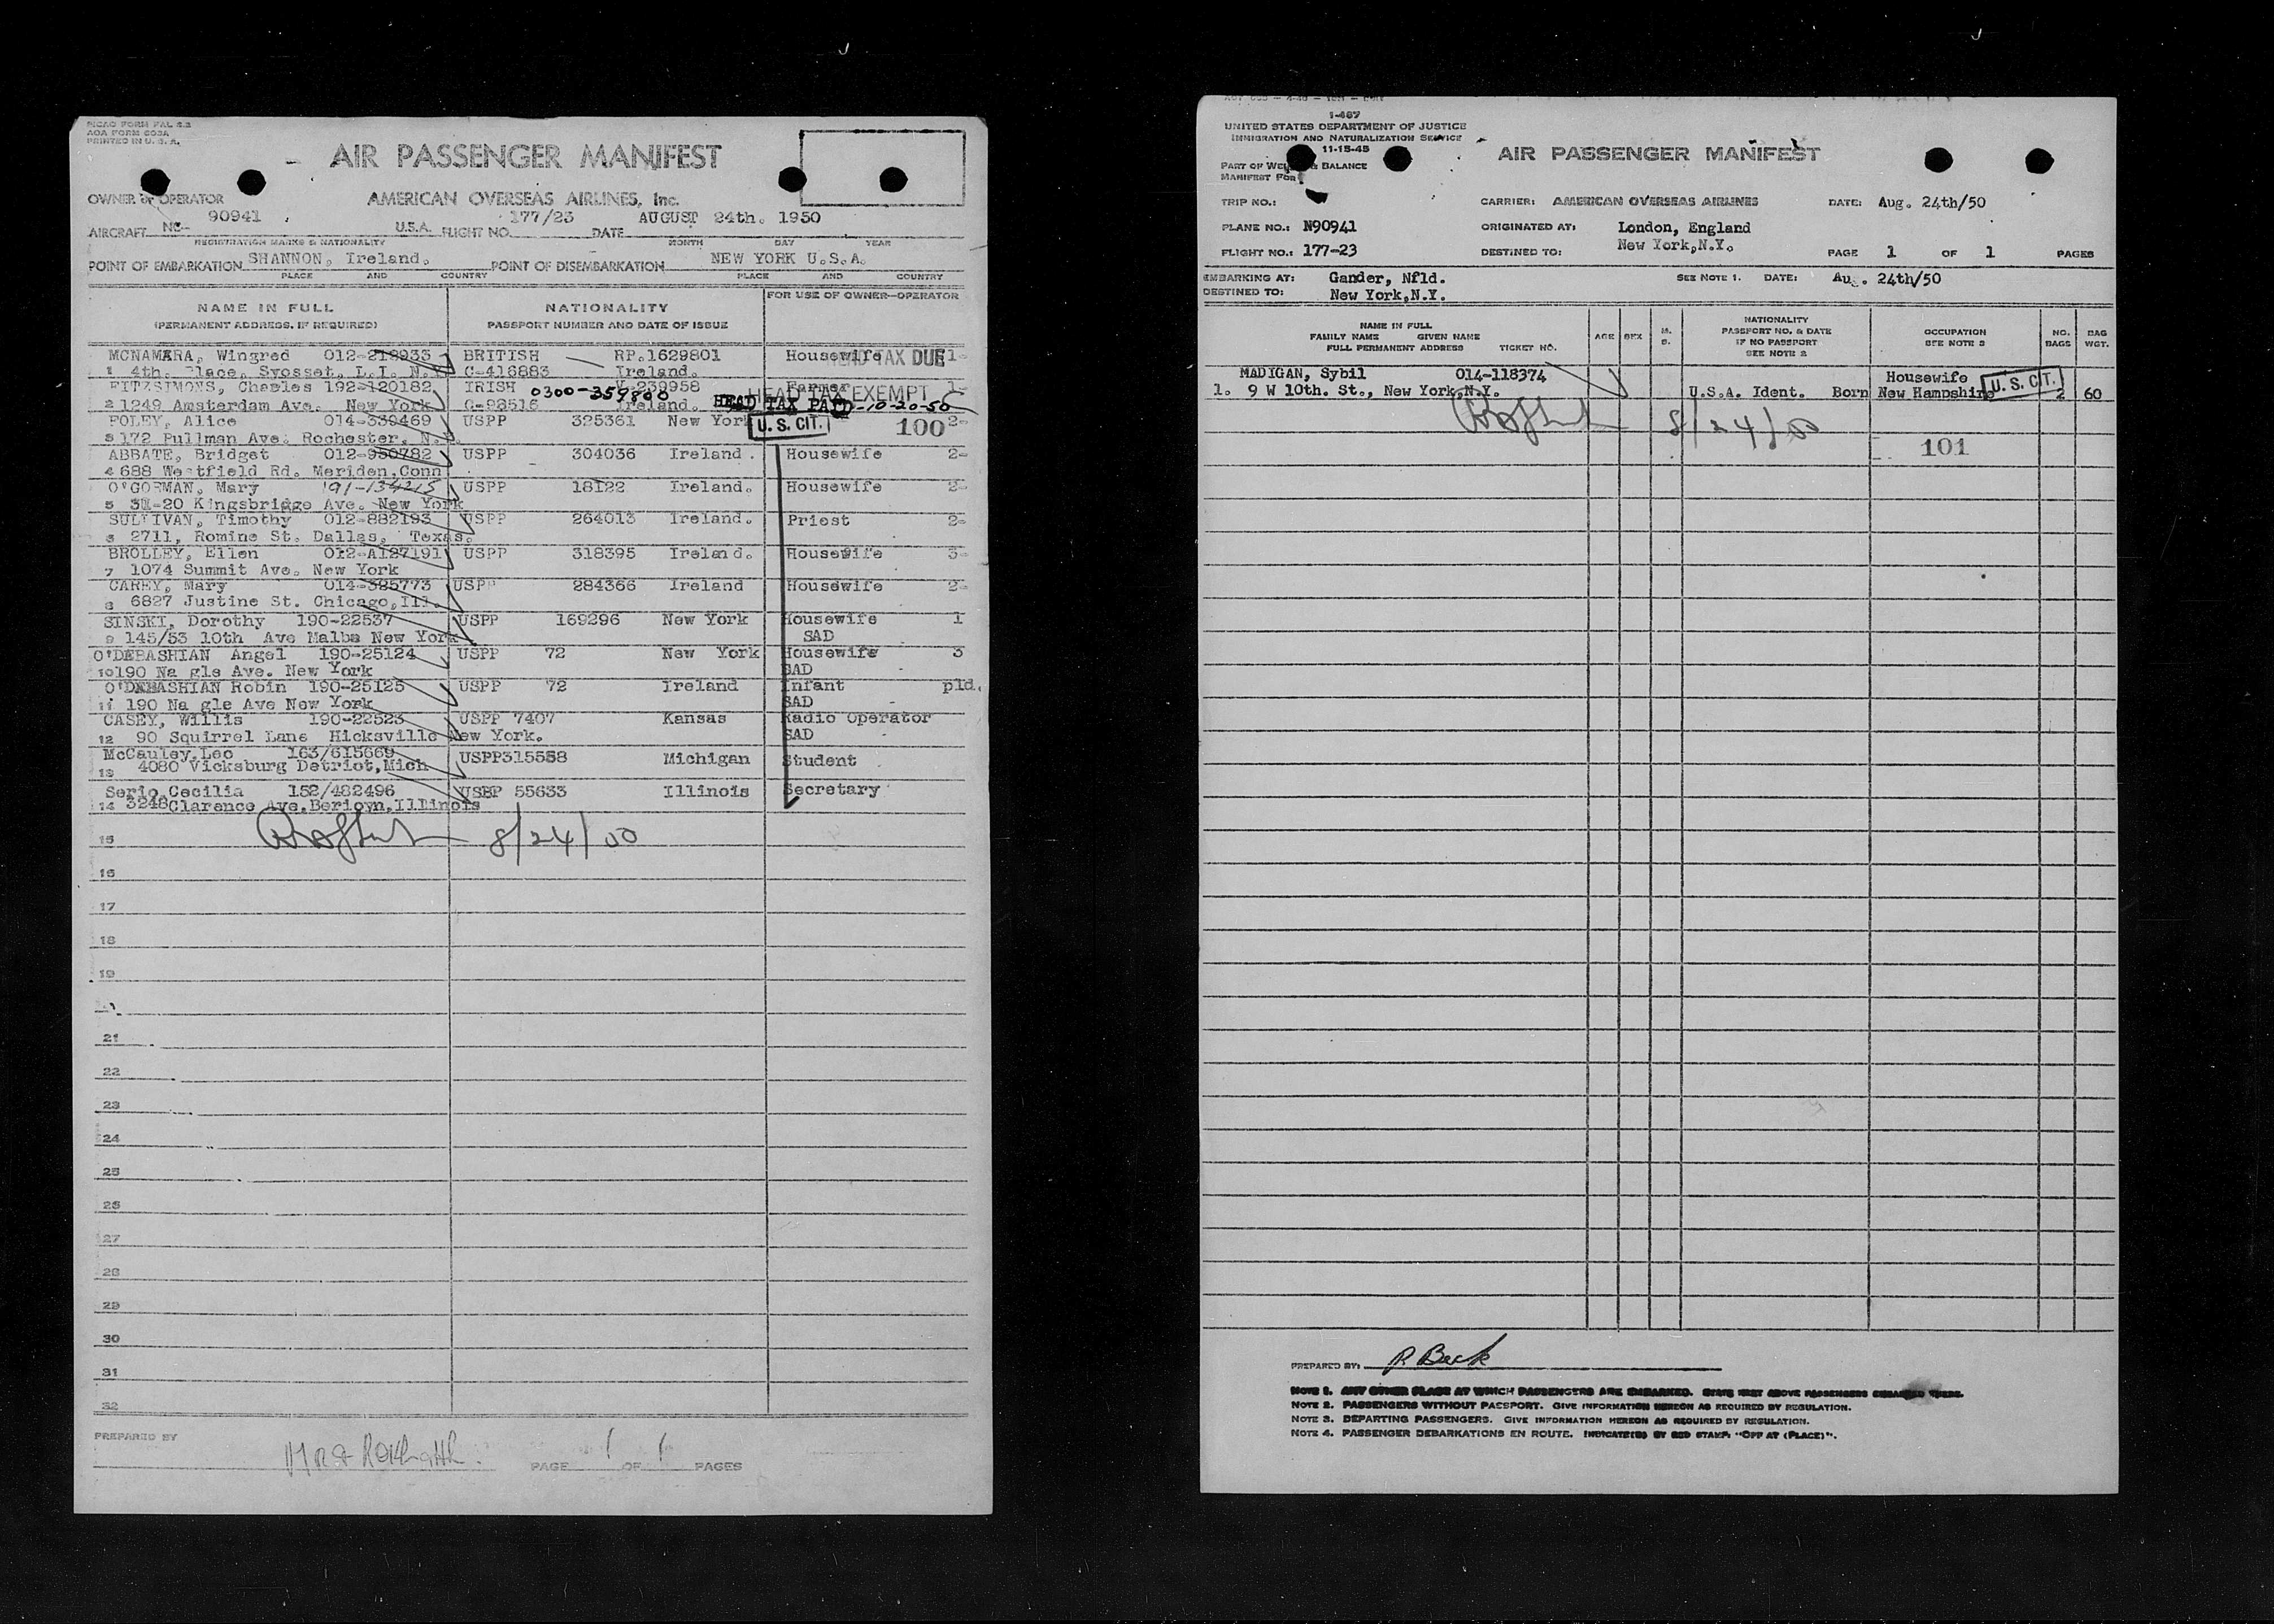 PICAO FORM PAL 2.2
AOA FORM 603A
PRINTED IN U. S. A.
AIR PASSENGER MANIFEST
OWNER or OPERATOR AMERICAN OVERSEAS AIRLINES, Inc.
AIRCRAFT NC- 90941 U.S.A. FLIGHT NO. 177/23 DATE AUGUST 24th. 1950
REGISTRATION MARKS & NATIONALITY MONTH DAY YEAR
POINT OF EMBARKATION SHANNON, Ireland. POINT OF DISEMBARKATION NEW YORK U.S.A.
PLACE AND COUNTRY PLACE AND COUNTRY
NAME IN FULL NATIONALITY FOR USE OF OWNER—OPERATOR
(PERMANENT ADDRESS, IF REQUIRED) PASSPORT NUMBER AND DATE OF ISSUE
MCNAMARA, Wingred 012-218933 BRITISH RP.1629801 Housewife TAX DUE 1-
1 4th. Place, Syosset, L.I. N.Y. C-416883 Ireland.
FITZSIMONS, Chaeles 192-120182 IRISH 0300-359800 V-239958 Farmer HEAD TAX EXEMPT 1-
2 1249 Amsterdam Ave. New York C-98516 Ireland. HEAD TAX PAID-10-20-50
FOLEY, Alice 014-339469 USPP 325361 New York U. S. CIT. 100 2-
3 172 Pullman Ave. Rochester, N.Y.
ABBATE, Bridget 012-950782 USPP 304036 Ireland. Housewife 2-
4 688 Westfield Rd. Meriden,Conn
O'GORMAN, Mary 191-134215 USPP 18122 Ireland. Housewife 2-
5 31-20 Kingsbridge Ave. New York
SULLIVAN, Timothy 012-882193 USPP 264013 Ireland. Priest 2-
6 2711, Romine St. Dallas, Texas.
BROLLEY, Ellen 012-A127191 USPP 318395 Ireland. Housewife 3-
7 1074 Summit Ave. New York
CAREY, Mary 014-385773 USPP 284366 Ireland Housewife 2-
8 6827 Justine St. Chicago,Ill.
SINSKI, Dorothy 190-22537 USPP 169296 New York Housewife 1
9 145/53 10th Ave Malba New York SAD
O'DEBASHIAN Angel 190-25124 USPP 72 New York Housewife 3
10 190 Na gle Ave. New York SAD
O'DEBASHIAN Robin 190-25125 USPP 72 Ireland Infant pld.
11 190 Na gle Ave New York SAD
CASEY, Willis 190-22523 USPP 7407 Kansas Radio Operator
12 90 Squirrel Lane Hicksville New York. SAD
McCauley,Leo 163/615669 USPP315558 Michigan Student
13 4080 Vicksburg Detriot,Mich
Serio,Cecilia 152/482496 USPP 55633 Illinois Secretary
14 3248Clarence Ave.Berioyn,Illinois
15 8/24/50
16
17
18
19
21
22
23
24
25
26
27
28
29
30
31
32
PREPARED BY
PAGE 1 OF 1 PAGES
I-487
UNITED STATES DEPARTMENT OF JUSTICE
IMMIGRATION AND NATURALIZATION SERVICE
11-15-45
AIR PASSENGER MANIFEST
PART OF WEIGHT & BALANCE
MANIFEST FOR
TRIP NO.: CARRIER: AMERICAN OVERSEAS AIRLINES DATE: Aug. 24th/50
PLANE NO.: N90941 ORIGINATED AT: London, England
FLIGHT NO.: 177-23 DESTINED TO: New York,N.Y. PAGE 1 OF 1 PAGES
EMBARKING AT: Gander, Nfld. SEE NOTE 1. DATE: Aug. 24th/50
DESTINED TO: New York,N.Y.
NAME IN FULL
FAMILY NAME GIVEN NAME
FULL PERMANENT ADDRESS TICKET NO.
AGE SEX M. S.
NATIONALITY
PASSPORT NO. & DATE
IF NO PASSPORT
SEE NOTE 2
OCCUPATION
SEE NOTE 3
NO. BAGS
BAG WGT.
MADIGAN, Sybil 014-118374 Housewife U. S. CIT.
1. 9 W 10th. St., New York,N.Y. U.S.A. Ident. Born New Hampshire 2 60
8/24/50
101
PREPARED BY: R Beck
NOTE 1. ANY OTHER PLACE AT WHICH PASSENGERS ARE EMBARKED. STATE FIRST ABOVE PASSENGERS EMBARKED THERE.
NOTE 2. PASSENGERS WITHOUT PASSPORT. GIVE INFORMATION HEREON AS REQUIRED BY REGULATION.
NOTE 3. DEPARTING PASSENGERS. GIVE INFORMATION HEREON AS REQUIRED BY REGULATION.
NOTE 4. PASSENGER DEBARKATIONS EN ROUTE. INDICATE(S) BY RED STAMP: "OFF AT (PLACE)".